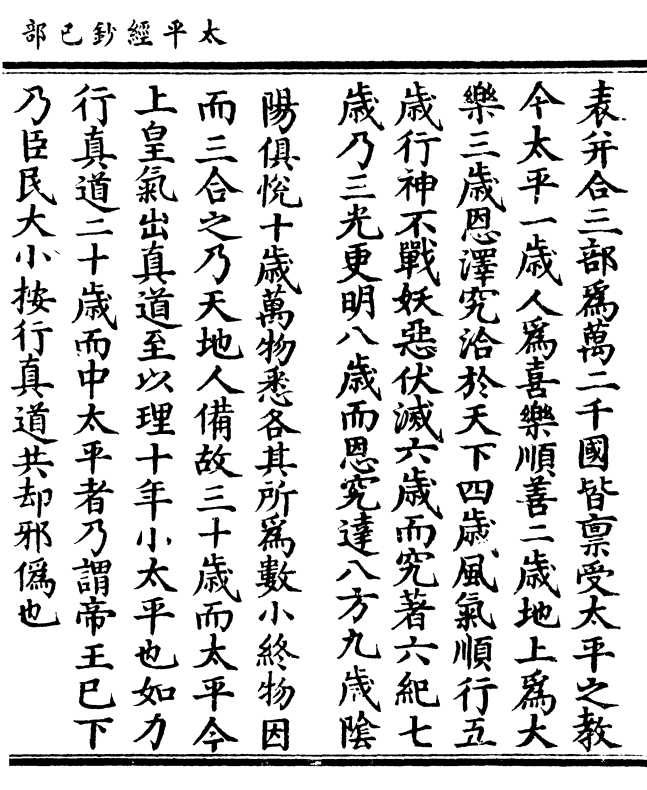 太平經鈔巳部
表并合三部爲萬二千國皆稟受太平之教
今太平一歲人爲喜樂順善二歲地上爲大
樂三歲恩澤究洽於天下四歲風氣順行五
歲行神不戰妖惡伏滅六歲而究著六紀七
歲乃三光更明八歲而恩究達八方九歲陰
陽俱悅十歲萬物悉各其所爲數小終物因
而三合之乃天地人備故三十歲而太平今
上皇氣出真道至以理十年小太平也如力
行真道二十歲而中太平者乃謂帝王已下
乃臣民大小按行真道共却邪僞也